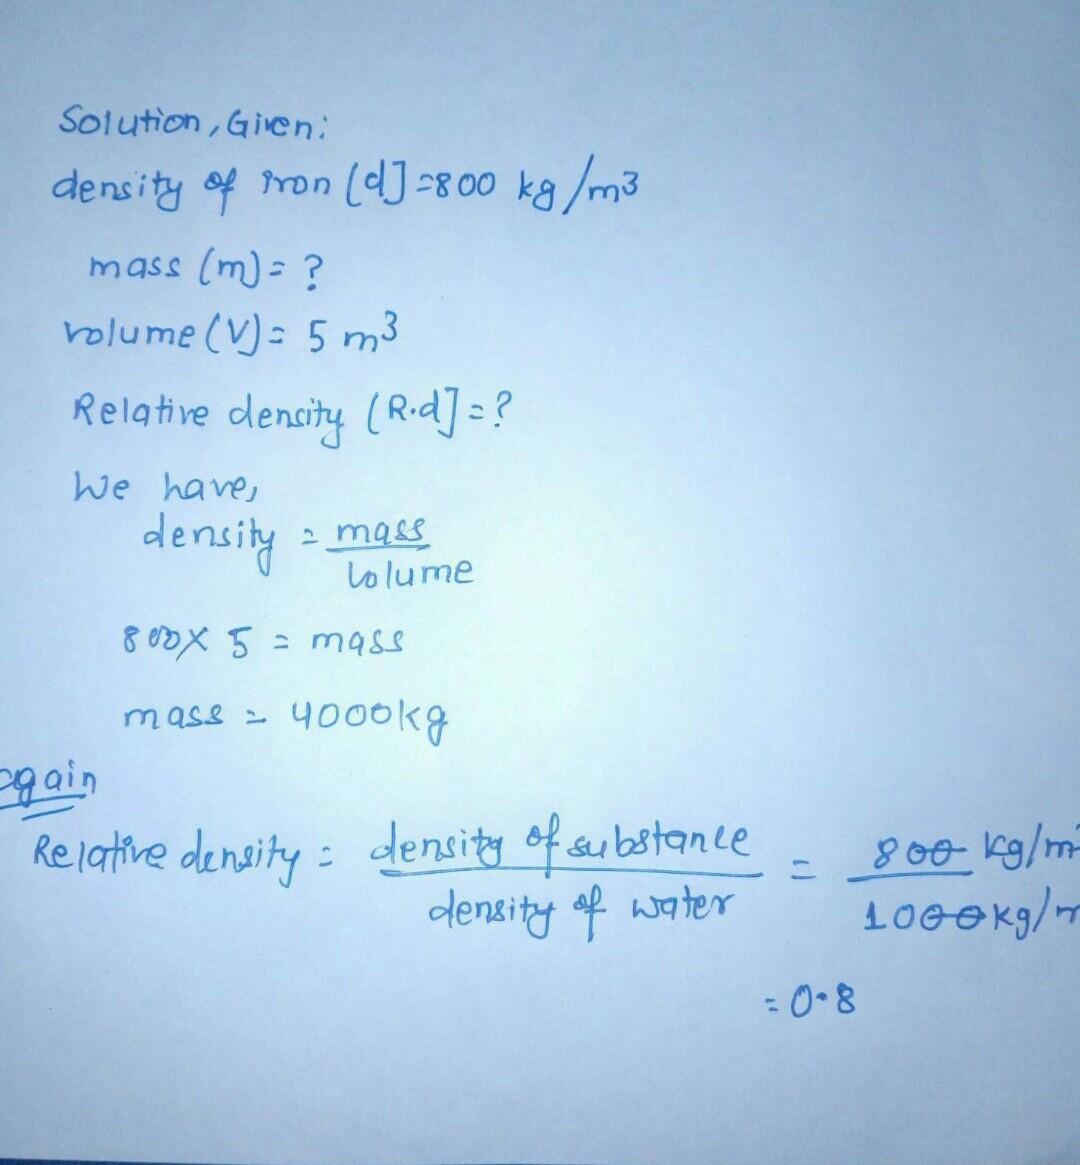 Solution, Given:
density of iron (d] = 800 kg/m3
mass (m) = ?
volume (V) = 5 m3
Relative density (R.d] = ?
We have,
density = mass
Volume
800 X 5 = mass
mass = 4000kg
again
Relative density = density of substance = 800 kg/m
density of water 1000kg/m
= 0.8